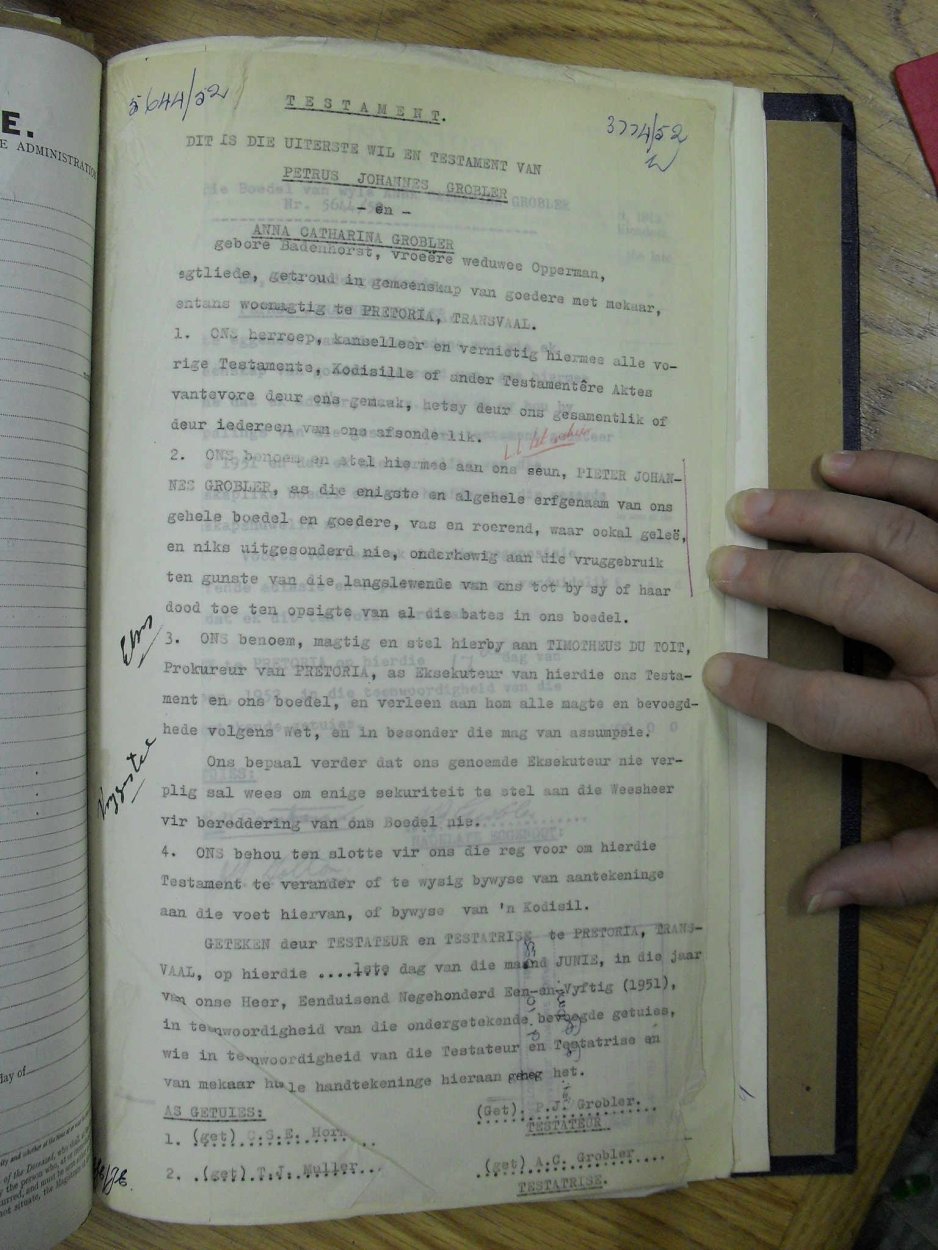 5644/52
3774/52
TESTAMENT.
DIT IS DIE UITERSTE WIL EN TESTAMENT VAN
PETRUS JOHANNES GROBLER
- en -
ANNA CATHARINA GROBLER
gebore Badenhorst, vroeëre weduwee Opperman,
egtliede, getroud in gemeenskap van goedere met mekaar,
entans woonagtig te PRETORIA, TRANSVAAL.
1. ONS herroep, kanselleer en vernietig hiermee alle vo-
rige Testamente, Kodisille of ander Testamentêre Aktes
vantevore deur ons gemaak, hetsy deur ons gesamentlik of
deur iedereen van ons afsonderlik.
2. ONS benoem en stel hiermee aan ons seun, PIETER JOHAN-
NES GROBLER, as die enigste en algehele erfgenaam van ons
gehele boedel en goedere, vas en roerend, waar ookal geleë,
en niks uitgesonderd nie, onderhewig aan die vruggebruik
ten gunste van die langslewende van ons tot by sy of haar
dood toe ten opsigte van al die bates in ons boedel.
3. ONS benoem, magtig en stel hierby aan TIMOTHEUS DU TOIT,
Prokureur van PRETORIA, as Eksekuteur van hierdie ons Testa-
ment en ons boedel, en verleen aan hom alle magte en bevoegd-
hede volgens wet, en in besonder die mag van assumpsie.
Ons bepaal verder dat ons genoemde Eksekuteur nie ver-
plig sal wees om enige sekuriteit te stel aan die Weesheer
vir bereddering van ons Boedel nie.
4. ONS behou ten slotte vir ons die reg voor om hierdie
Testament te verander of te wysig bywyse van aantekeninge
aan die voet hiervan, of bywyse van 'n Kodisil.
GETEKEN deur TESTATEUR en TESTATRISE te PRETORIA, TRANS-
VAAL, op hierdie ....1ste dag van die maand JUNIE, in die jaar
van onse Heer, Eenduisend Negehonderd Een-en-Vyftig (1951),
in teenwoordigheid van die ondergetekende bevoegde getuies,
wie in teenwoordigheid van die Testateur en Testatrise en
van mekaar hulle handtekeninge hieraan geheg het.
AS GETUIES:
(Get). P.J. Grobler.
TESTATEUR.
1. (get) C.S.E. Horn
2. (get) T.J. Muller
(get) A.C. Grobler
TESTATRISE.
E.
E ADMINISTRATION
day of